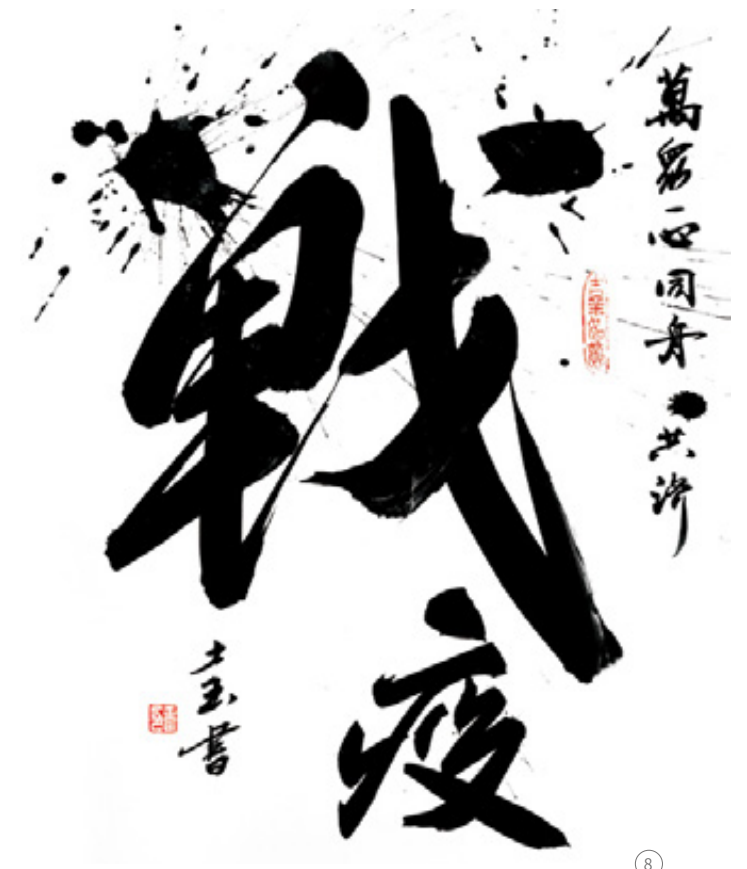 萬眾一心同舟共濟
戰
疫
書
8